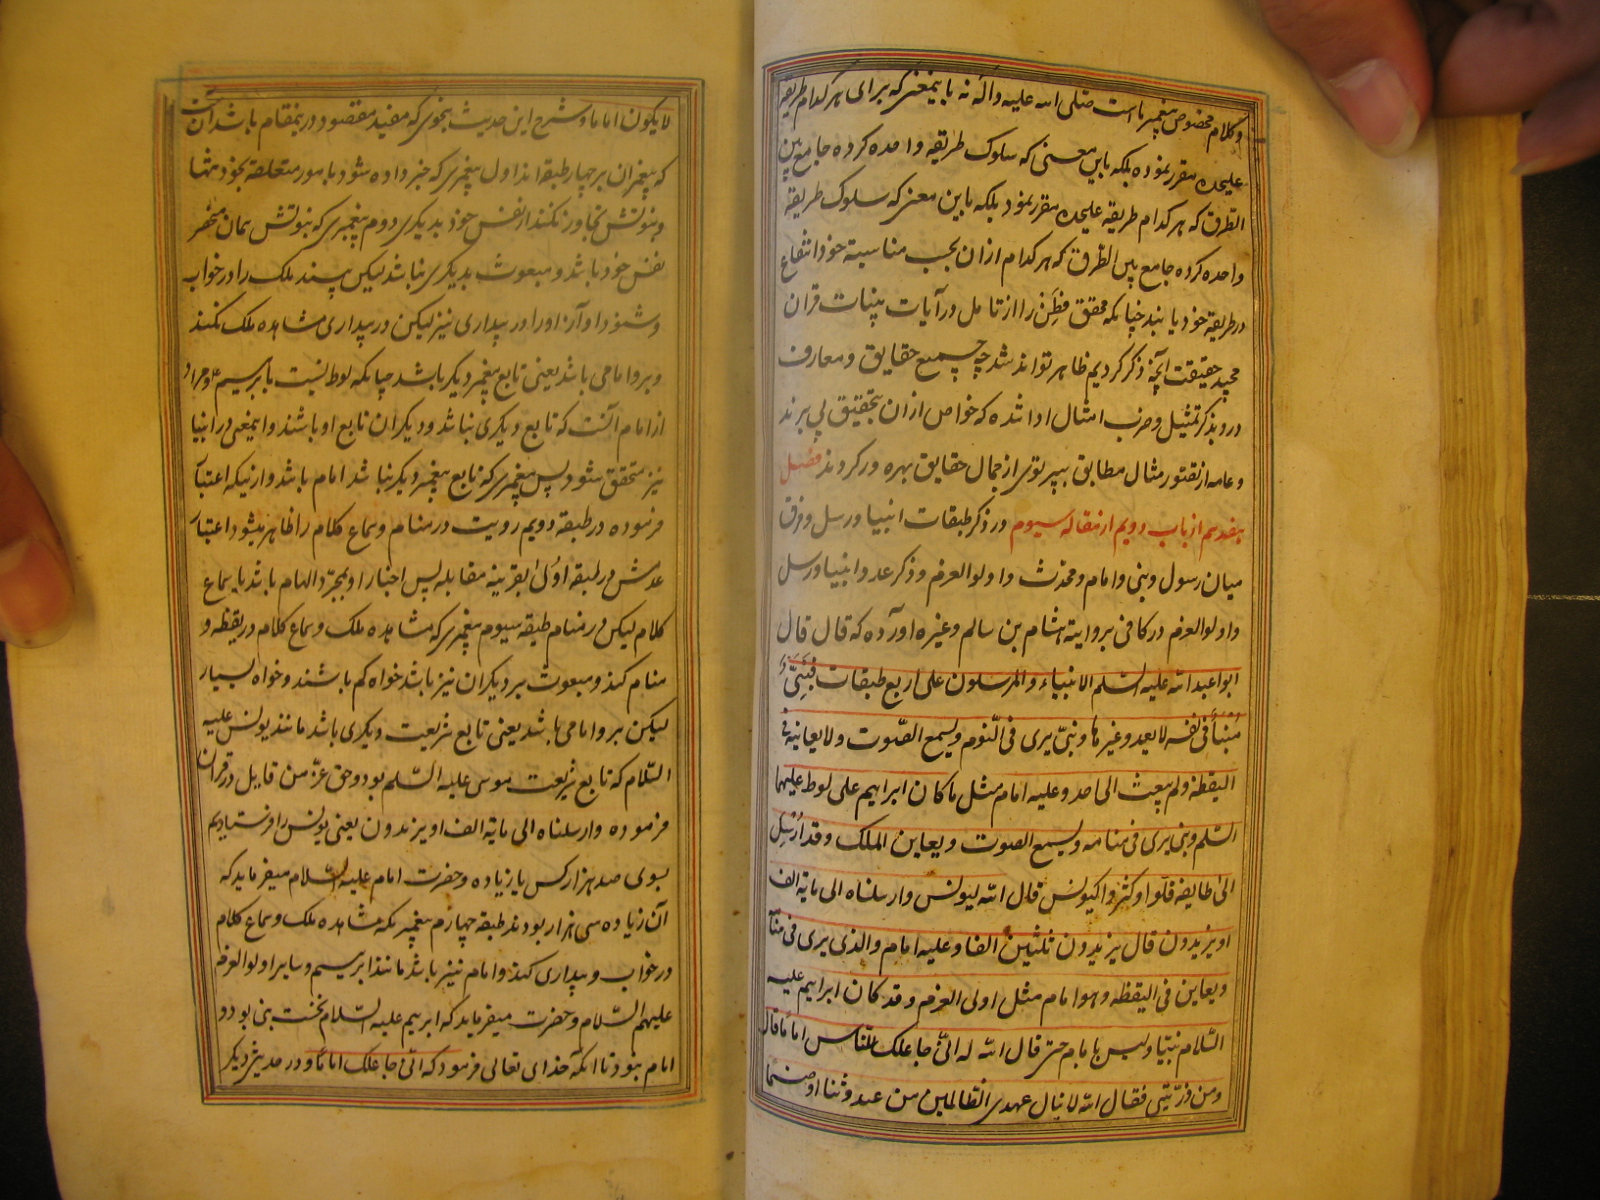 و کلام مخصوص پیغمبر ماست صلی الله علیه و آله نه باینمعنی که برای هر کدام طریقه
علیحده مقرر نموده بلکه باین معنی که سلوک طریقه واحده کرده جامع بین
الطرق که هر کدام طریقه علیحده مقرر نمود بلکه باین معنی که سلوک طریقه
واحده کرده جامع بین الطّرق که هر کدام ازان بحسب مناسبة خود انتفاع
در طریقه خود یابند چنانکه محقق فطِن را از تامل در آیات بینات قران
مجید حقیقت آنچه ذکر کردیم ظاهر تواند شد چه جمیع حقایق و معارف
درو بذکر تمثیل و ضرب امثال ادا شده که خواص ازان بتحقیق پی برند
و عامه از تصور مثال مطابق بپرتوی از جمال حقایق بهره ور کردند فصل
هفدهم از باب دویم از مقاله سیوم در ذکر طبقات انبیا و رسل و فرق
میان رسول و نبی و امام و محدث و اولو العزم و ذکر عدد انبیا و رسل
و اولو العزم در کافی بروایته هشام بن سالم و غیره آورده که قال قال
ابو عبد الله علیه السّلم الانبیاء و المرسلون علی اربع طبقات فنبیّ
مُنَبّأ فی نفسه لا یعد و غیرها و نبیّ یری فی النّوم و یسمع الصّوت و لا یعاینه فی
الیقظة و لم یبعث الی احد و علیه امام مثل ما کان ابراهیم علی لوط علیهما
السّلم و نبی یری فی منامه و یسمع الصوت و یعاین الملک و قد اُرْسِل
الی طایفه قلّوا او کثروا کیونس قال الله لیونس و ارسلناه الی مایة الف
او یزیدون قال یزیدون ثلثین الفا و علیه امام و الذی یری فی منامه
و یعاین فی الیقظه و هو امام مثل اولی العزم و قد کان ابراهیم علیه
السّلام نبیّا و لیس بامام حتی قال الله له انّی جاعلک للنّاس اماما قال
و من ذرّیتی فقال الله لا ینال عهدی الظالمین من عبد وثنا او صنما
لا یکون اماما و شرح این حدیث بنحوی که مفید مقصود درینمقام باشد آنست
که پیغمبران بر چهار طبقه اند اول پیغمبری که خبر داده شود بامور متعلقة بخود تنها
و نبوتش تجاوز نکند از نفس خود بدیکری دوم پیغمبری که نبوتش همان منحصر
نفس خود باشد و مبعوث بدیکری نباشد لیکن بیند ملک را در خواب
و شنود آواز او را در بیداری نیز لیکن در بیداری مشاهده ملک نکند
و برو امامی باشد یعنی تابع پیغمبر دیکر باشد چنانکه لوط نسبت بابرهیم و مراد
از امام آنست که تابع دیکری نباشد و دیکران تابع او باشند و اینمعنی در انبیا
نیز متحقق شود پس پیغمبری که تابع پیغمبر دیکر نباشد امام باشد و از نیکه اعتبار
فرموده در طبقه دویم رویت در منام و سماع کلام را ظاهر میشود اعتبار
عدمش در طبقه اوّل بقرینه مقابله پس اخبار او بمجرّد الهام باشد یا بسماع
کلام لیکن در منام طبقه سیوم پیغمبری که مشاهده ملک و سماع کلام در یقظه و
منام کند و مبعوث بر دیکران نیز باشد خواه کم باشند و خواه بسیار
لیکن برو امامی باشد یعنی تابع شریعت دیکری باشد مانند یونس علیه
السّلام که تابع شریعت موسی علیه السّلم بود و حق عزّ من قایل در قران
فرموده و ارسلناه الی مایة الف او یزیدون یعنی یونس را فرستادیم
بسوی صد هزار کس یا زیاده و حضرت امام علیه السّلام میفرماید که
آن زیاده سی هزار بودند طبقه چهارم پیغمبر یکه مشاهده ملک و سماع کلام
در خواب و بیداری کند و امام نیز باشد مانند ابرهیم و سایر اولو العزم
علیهم السّلام و حضرت میفرماید که ابرهیم علیه السّلام نخست نبی بود و
امام نبود تا آنکه خدای تعالی فرمود که انّی جاعلک اماماً و در حدیثی دیکر